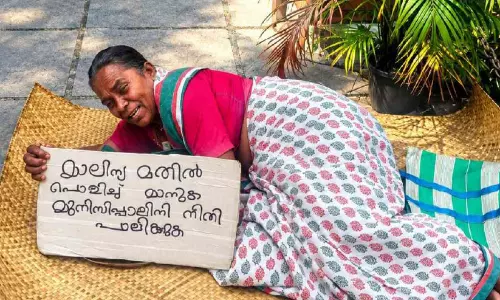 മാലിന്യ മതിൽ
പൊളിച്ച് മാറ്റുക
മുനിസിപ്പാലിറ്റി നീതി
പാലിക്കുക